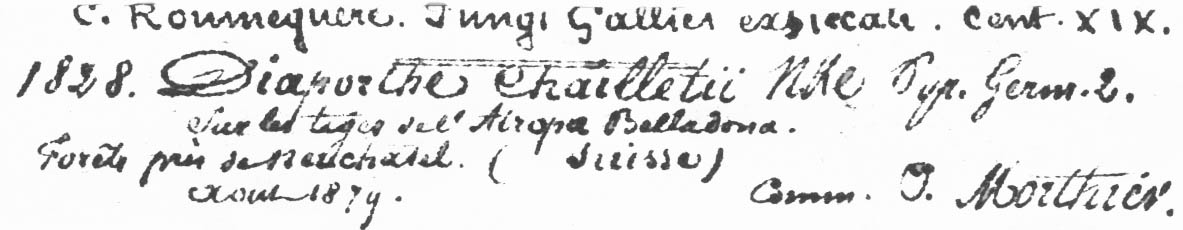 C. Roumeguère. Fungi Gallici exsiccati. Cent. XIX.
1828. Diaporthe Chailletii Nke Pyr. Germ. 2.
Sur les tiges de l'Atropa Belladona.
Forêts près de Neuchatel. (Suisse)
Aout 1879. Comm. P. Morthier.